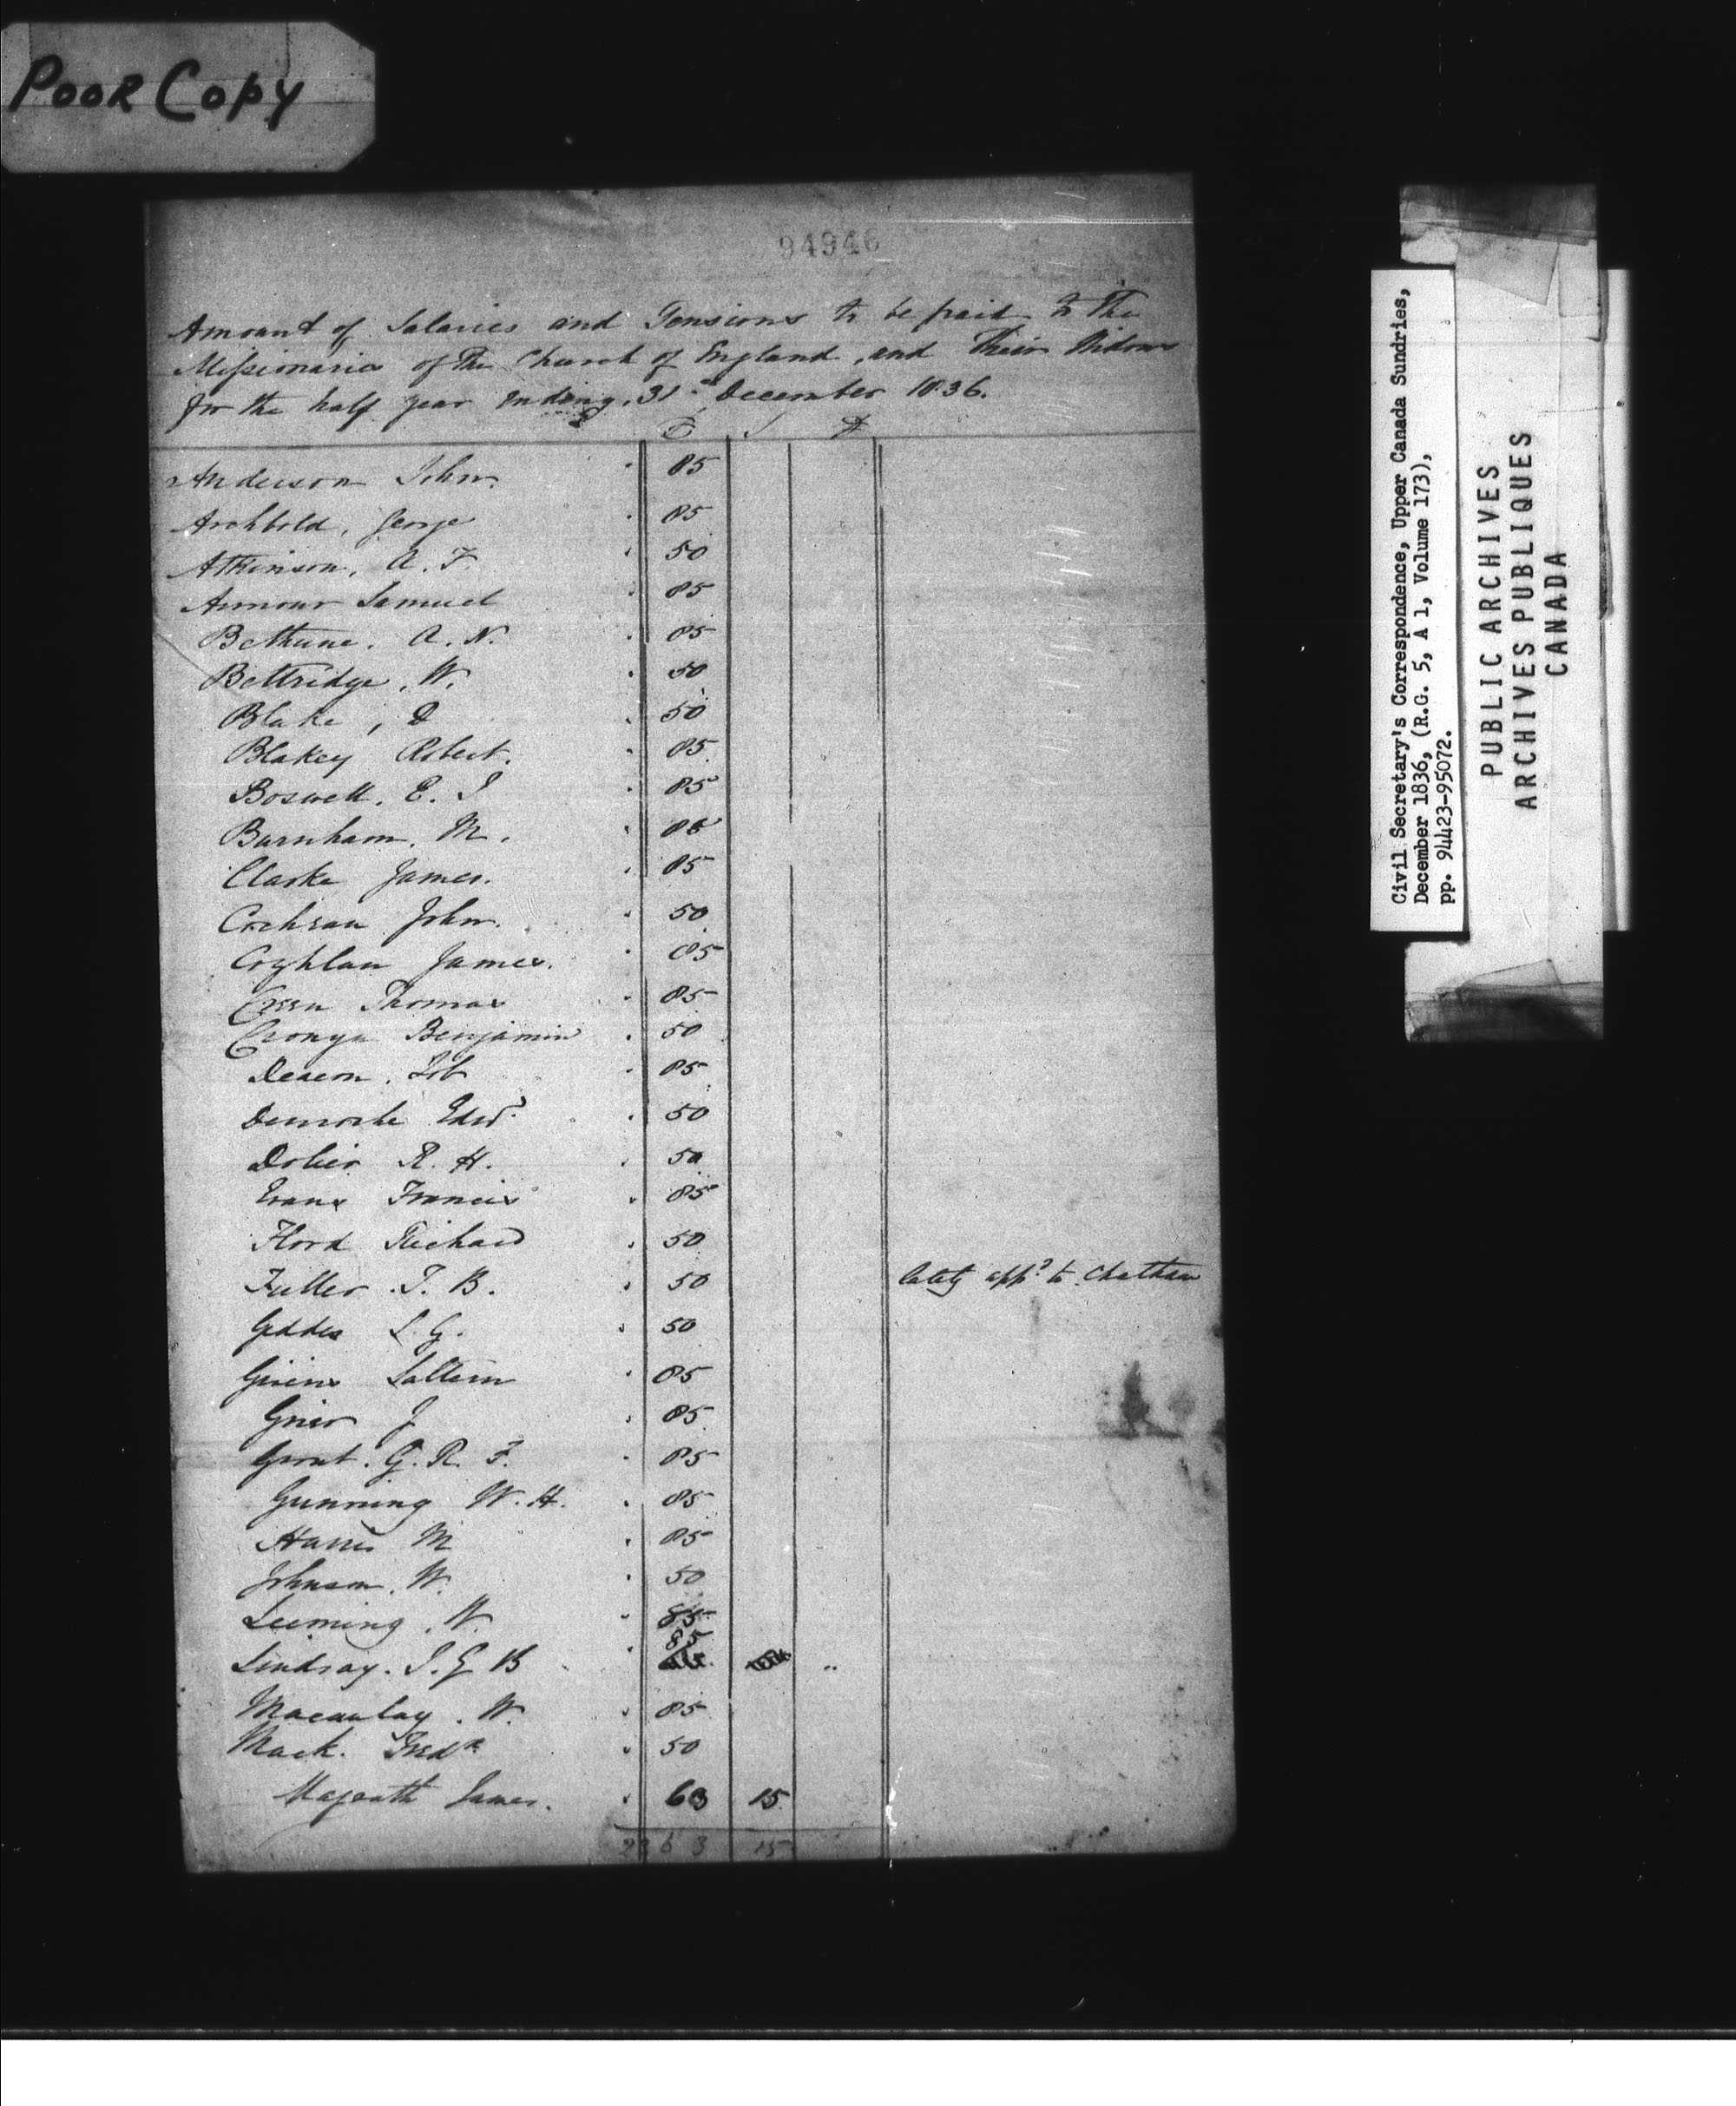 POOR COPY
94946
Amount of Salaries and Pensions to be paid to the
Missionaries of the Church of England, and their Widows
for the half year ending, 31st December 1836.
£ S D
Anderson John. 85
Archbold, George 85
Atkinson, A. F. 50
Armour Samuel 85
Bethune, A. N. 85
Bettridge, W. 50
Blake, D 50
Blakey Robert. 85
Boswell, E. J 85
Burnham, M. 85
Clarke James. 85
Cochran John. 50
Coghlan James. 85
Creen Thomas 85
Cronyn Benjamin 50
Deacon, Job 85
Denroche Edwd 50
Dolier R. H. 50
Evans Francis 85
Flood Richard 50
Fuller T. B. 50 lately appd to Chatham
Geddes J. G. 50
Givins Saltern 85
Grier J 85
Grout. G. R. F. 85
Gunning W. H. 85
Harris M 85
Johnson, W. 50
Leeming, W. 85
Lindsay. J. G B 85 ..
Macaulay. W. 85
Mack. Fredk 50
Magrath James. 63 15
2263 15
Civil Secretary's Correspondence, Upper Canada Sundries,
December 1836, (R.G. 5, A 1, Volume 173),
pp. 94423-95072.
PUBLIC ARCHIVES
ARCHIVES PUBLIQUES
CANADA